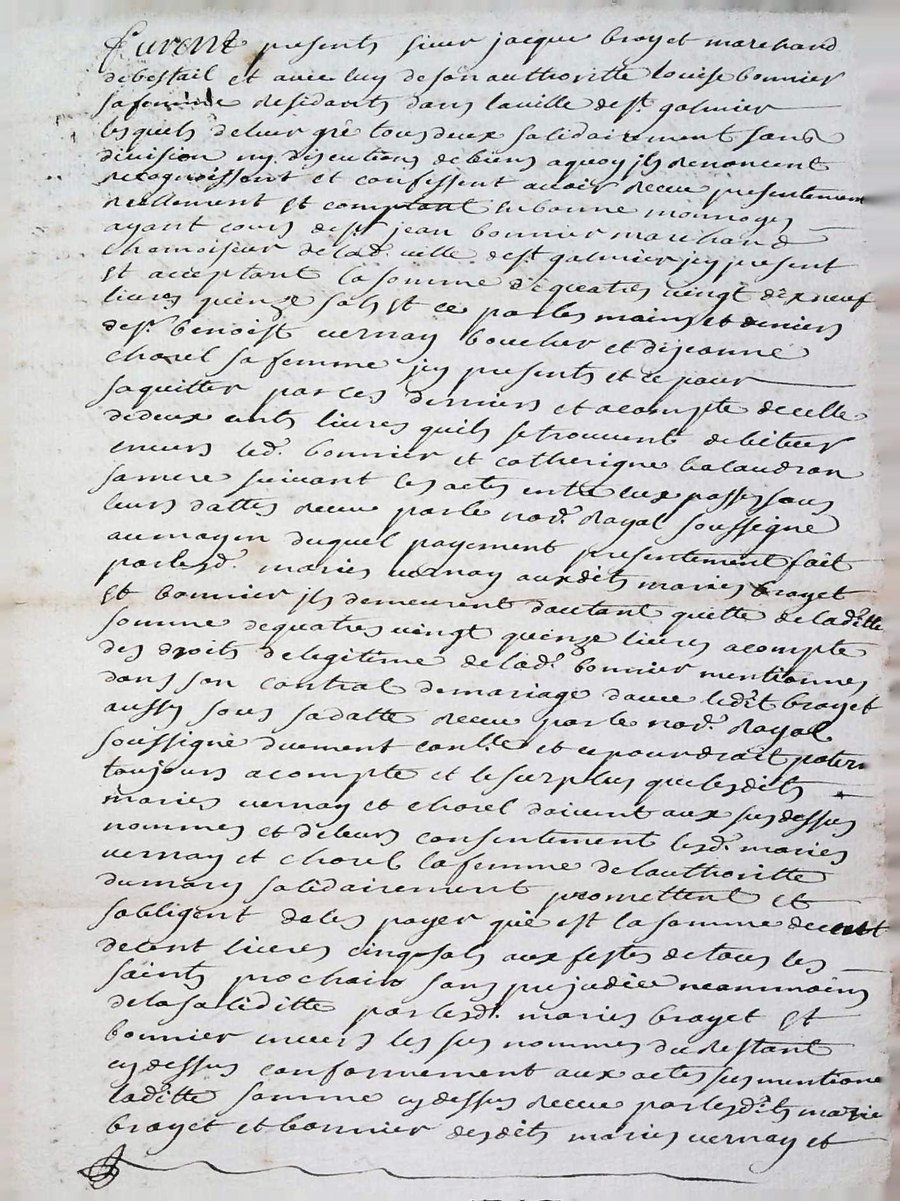 furent presents sieur jacque brayet marchand
de bestail et avec luy de son authoritte louise bonnier
sa femme residants dans la ville de st galmier
lesquels de leur gré tous deux solidairement sans
division ny discutions de biens a quoy ils renoncent
recognoissent et confessent avoir receu presentement
reellement et comptant en bonne monnoyes
ayant cours de sr jean bonnier marchand
chamoiseur de lad. ville de st galmier icy present
et acceptant la somme de quatres vingt dix neuf
livres quinze sols et ce par les mains et deniers
de sr benoist vernay boucher et de jeanne
chorel sa femme icy presents et ce pour
saquitter par ces derniers et acompte de celle
de deux cents livres quils se trouvent debiteur
envers led. bonnier et catherigne balaudran
sa mere suivant les actes entre eux passes sous
leurs dattes receu par le nore. Royal soussigné
au moyen duquel payement presentement fait
par lesd. maries vernay aux dits maries brayet
et bonnier ils demeurent dautant quitte de laditte
somme de quatres vingt quinze livres acompte
des droits de legitime de lad. bonnier mentionnes
dans son contrat de mariage davec ledit brayet
aussy sous sa datte receu par le nore. Royal
soussigné duement conllé et ce pour droit patern
toujours acompte et le surplus que lesdits
maries vernay et chorel doivent aux susdessus
nommes et de leurs consentement lesd. maries
vernay et chorel la femme de lauthoritte
du mary solidairement promettent et
sobligent de les payer que est la somme de cent
de cent livres cinq sols aux festes de tous les
saints prochain sans prejudice neanmoins
de la soliditte par lesd. maries brayet et
bonnier envers les sus nommes du restant
cy dessus conformement aux actes sus mentione
laditte somme cy dessus receue par lesdits marie
brayet et bonnier desdits maries vernay et